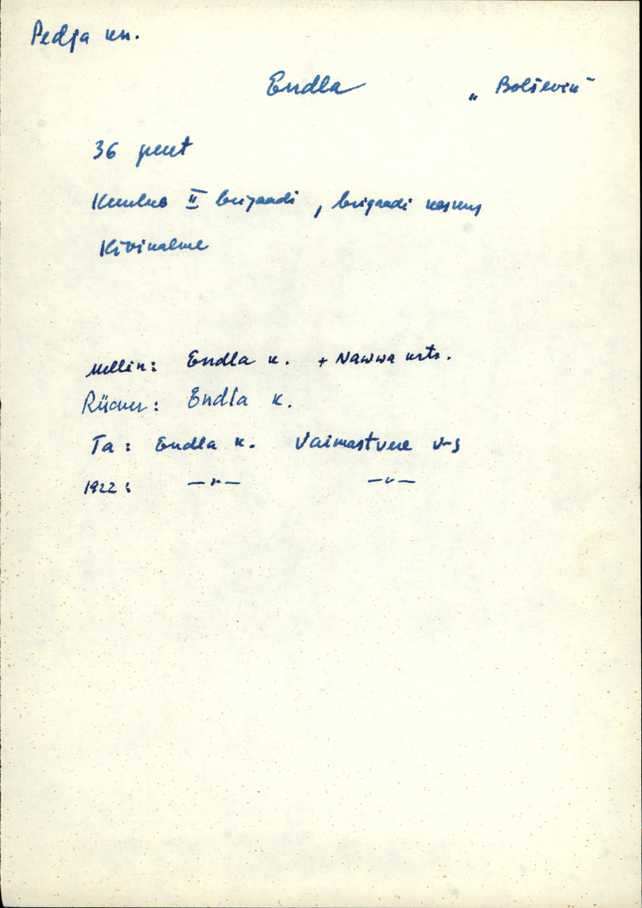 Pedja kn.
Endla „Bolševik"
36 peret
Kuulus II brigaadi, brigaadi keskus
Kivinalme
Mellin: Endla k. + Nawwa krts.
Rücker: Endla k.
Ta: Endla k. Vaimastvere v-s
1922: —"— —"—